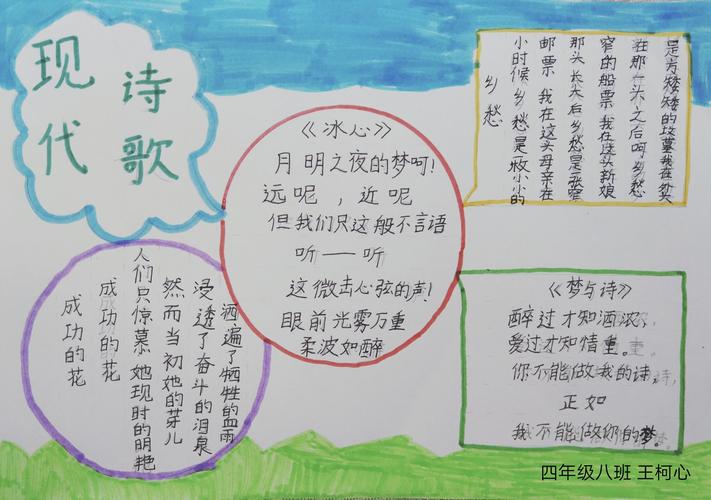 现代
诗歌
《冰心》
月明之夜的梦呵!
远呢,近呢
但我们只这般不言语
听——听
这微击心弦的声!
眼前光雾万重
柔波如醉
乡愁
小时候 乡愁是一枚小小的
邮票 我在这头母亲在
那头 长大后 乡愁是一张窄
窄的船票 我在这头新娘
在那头 之后呵 乡愁
是方矮矮的坟墓我在外头
成功的花
成功的花
人们只惊慕她现时的明艳
然而当初她的芽儿
浸透了奋斗的泪泉
洒遍了牺牲的血雨
《梦与诗》
醉过才知酒浓、
爱过才知情重。
你不能做我的诗,
正如
我不能做你的梦。
四年级八班 王柯心